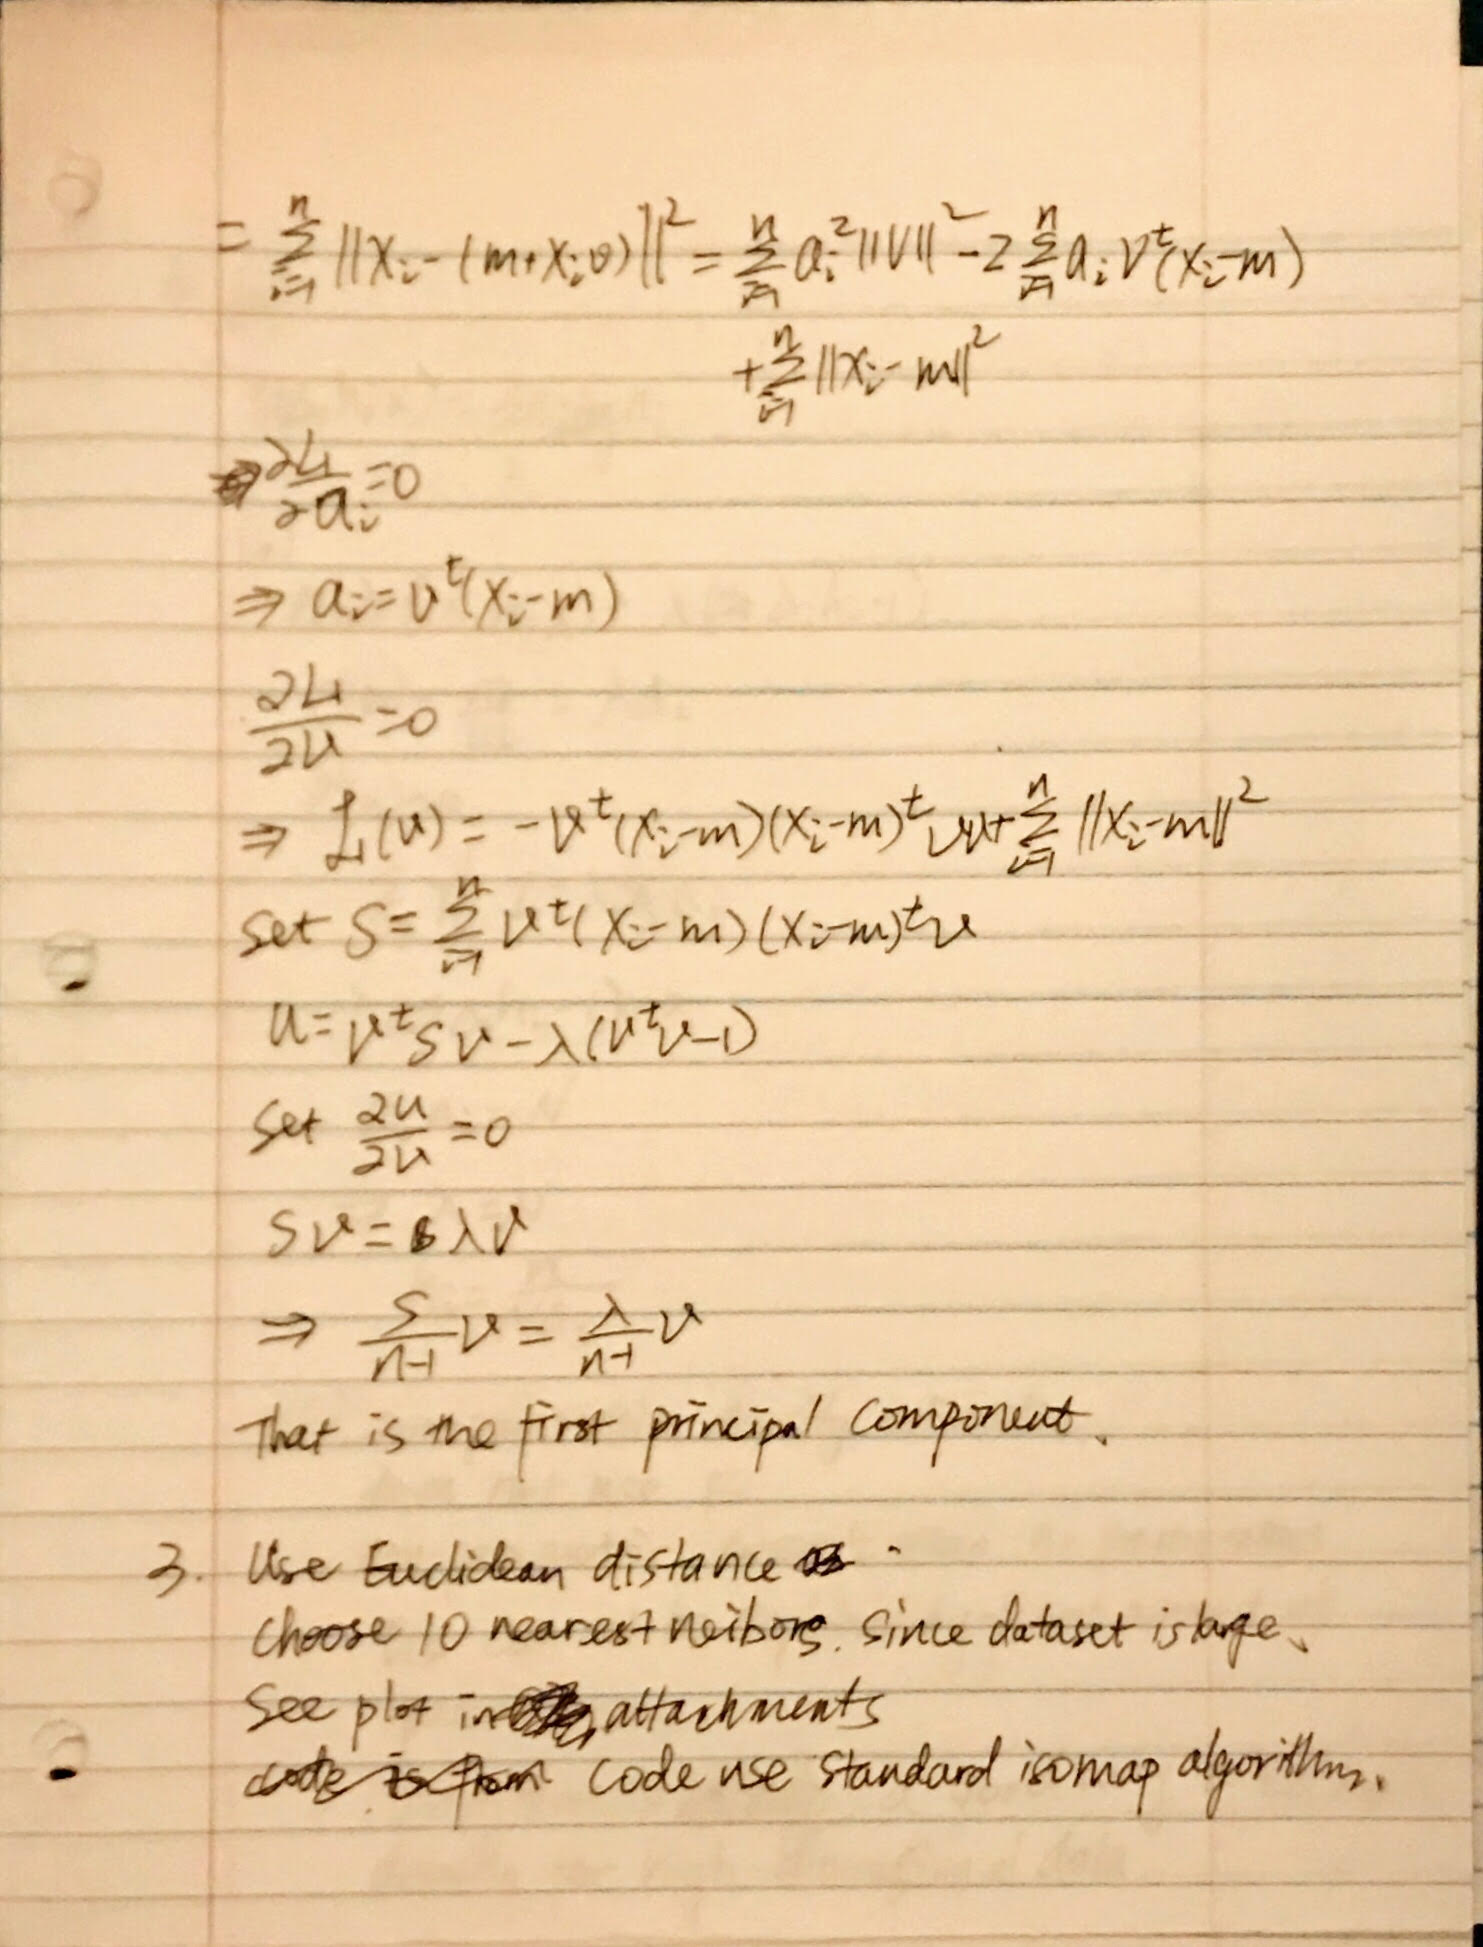 = \sum_{i=1}^{n} ||x_i - (m + x_i v)||^2 = \sum_{i=1}^{n} a_i^2 ||v||^2 - 2 \sum_{i=1}^{n} a_i v^t (x_i - m)
+ \sum_{i=1}^{n} ||x_i - m||^2
⇒ ∂L_1/∂a_i = 0
⇒ a_i = v^t (x_i - m)
∂L_1/∂v = 0
⇒ L_1(v) = - v^t (x_i - m)(x_i - m)^t v + \sum_{i=1}^{n} ||x_i - m||^2
set S = \sum_{i=1}^{n} v^t (x_i - m)(x_i - m)^t v
u = v^t S v - λ(v^t v - 1)
set ∂u/∂v = 0
S v = λ v
⇒ S/(n-1) v = λ/(n-1) v
That is the first principal component.
3. Use Euclidean distance.
choose 10 nearest neibors. Since dataset is large.
See plot in attachments
code is from code use standard isomap algorithm.